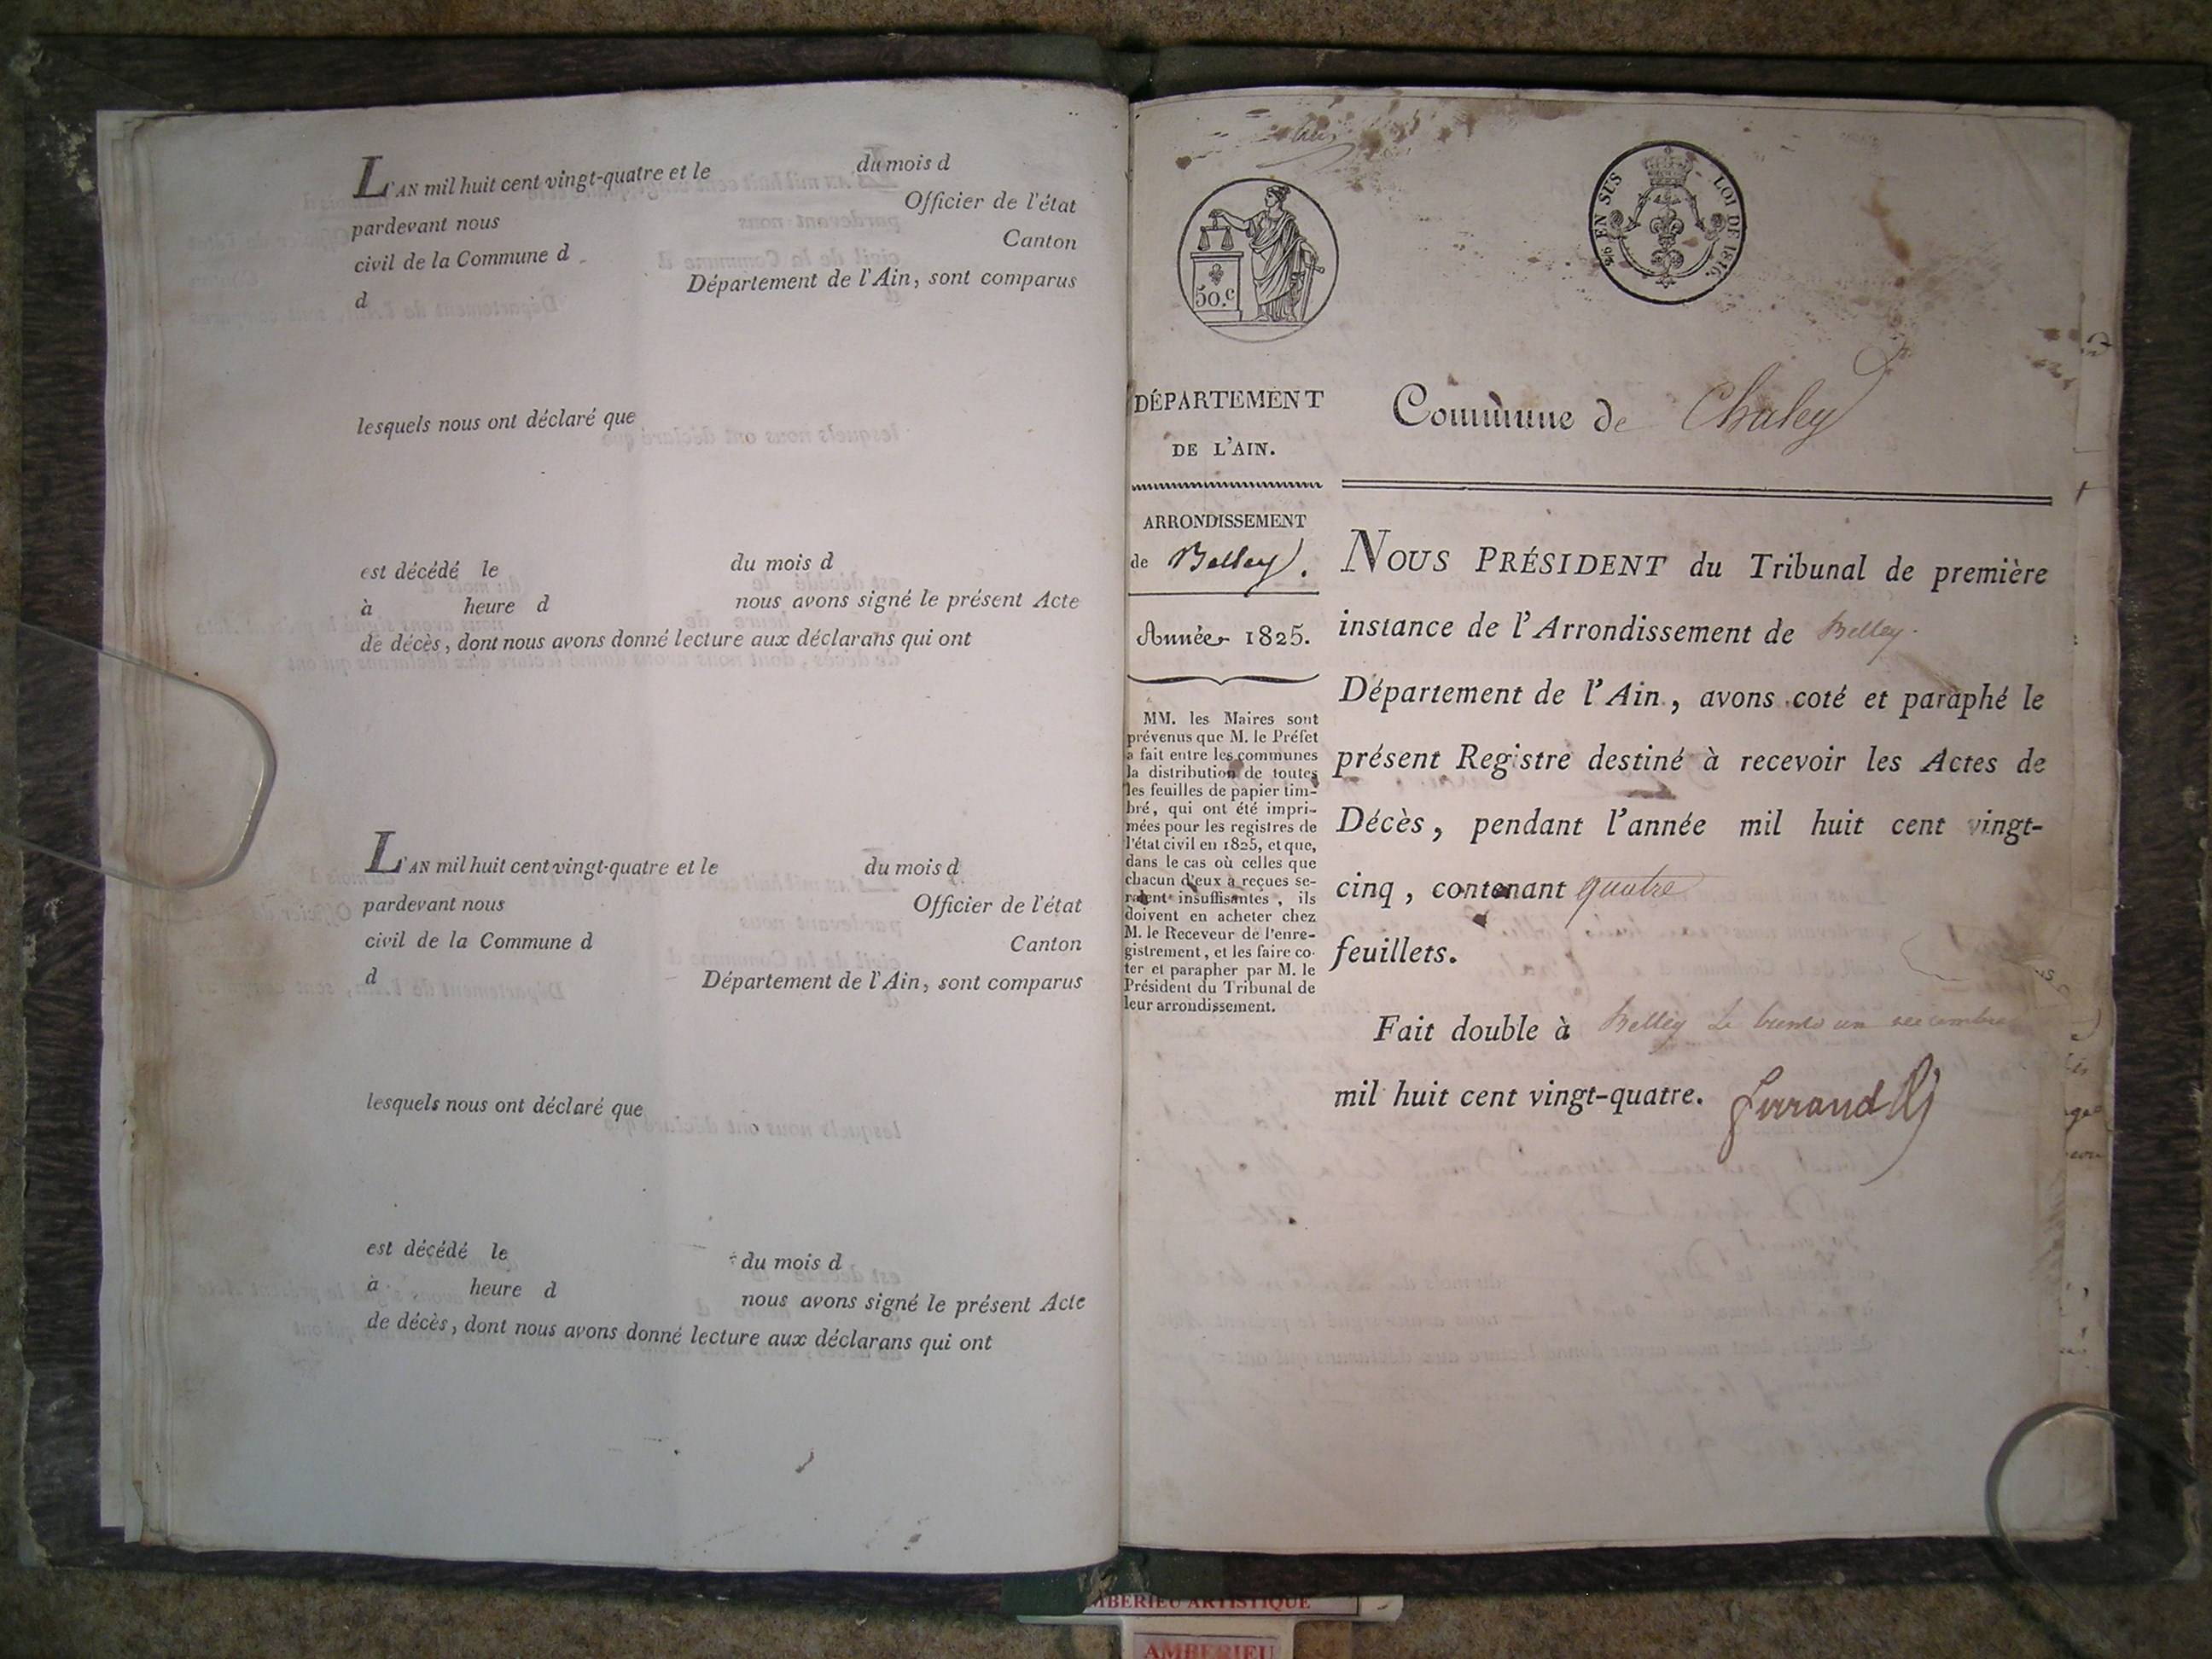 L'AN mil huit cent vingt-quatre et le du mois d
pardevant nous Officier de l'état
civil de la Commune d Canton
d Département de l'Ain, sont comparus
lesquels nous ont déclaré que
est décédé le du mois d
à heure d nous avons signé le présent Acte
de décès, dont nous avons donné lecture aux déclarans qui ont
L'AN mil huit cent vingt-quatre et le du mois d
pardevant nous Officier de l'état
civil de la Commune d Canton
d Département de l'Ain, sont comparus
lesquels nous ont déclaré que
est décédé le du mois d
à heure d nous avons signé le présent Acte
de décès, dont nous avons donné lecture aux déclarans qui ont
50.c
EN SUS LOI DE 1816.
DÉPARTEMENT
DE L'AIN.
ARRONDISSEMENT
de Belley.
Année 1825.
MM. les Maires sont
prévenus que M. le Préfet
a fait entre les communes
la distribution de toutes
les feuilles de papier tim-
bré, qui ont été impri-
mées pour les registres de
l'état civil en 1825, et que,
dans le cas où celles que
chacun d'eux a reçues se-
raient insuffisantes, ils
doivent en acheter chez
M. le Receveur de l'enre-
gistrement, et les faire co-
ter et parapher par M. le
Président du Tribunal de
leur arrondissement.
Commune de Chaley
NOUS PRÉSIDENT du Tribunal de première
instance de l'Arrondissement de Belley
Département de l'Ain, avons coté et paraphé le
présent Registre destiné à recevoir les Actes de
Décès, pendant l'année mil huit cent vingt-
cinq, contenant quatre
feuillets.
Fait double à Belley le trente un décembre
mil huit cent vingt-quatre.
AMBERIEU ARTISTIQUE
AMBERIEU